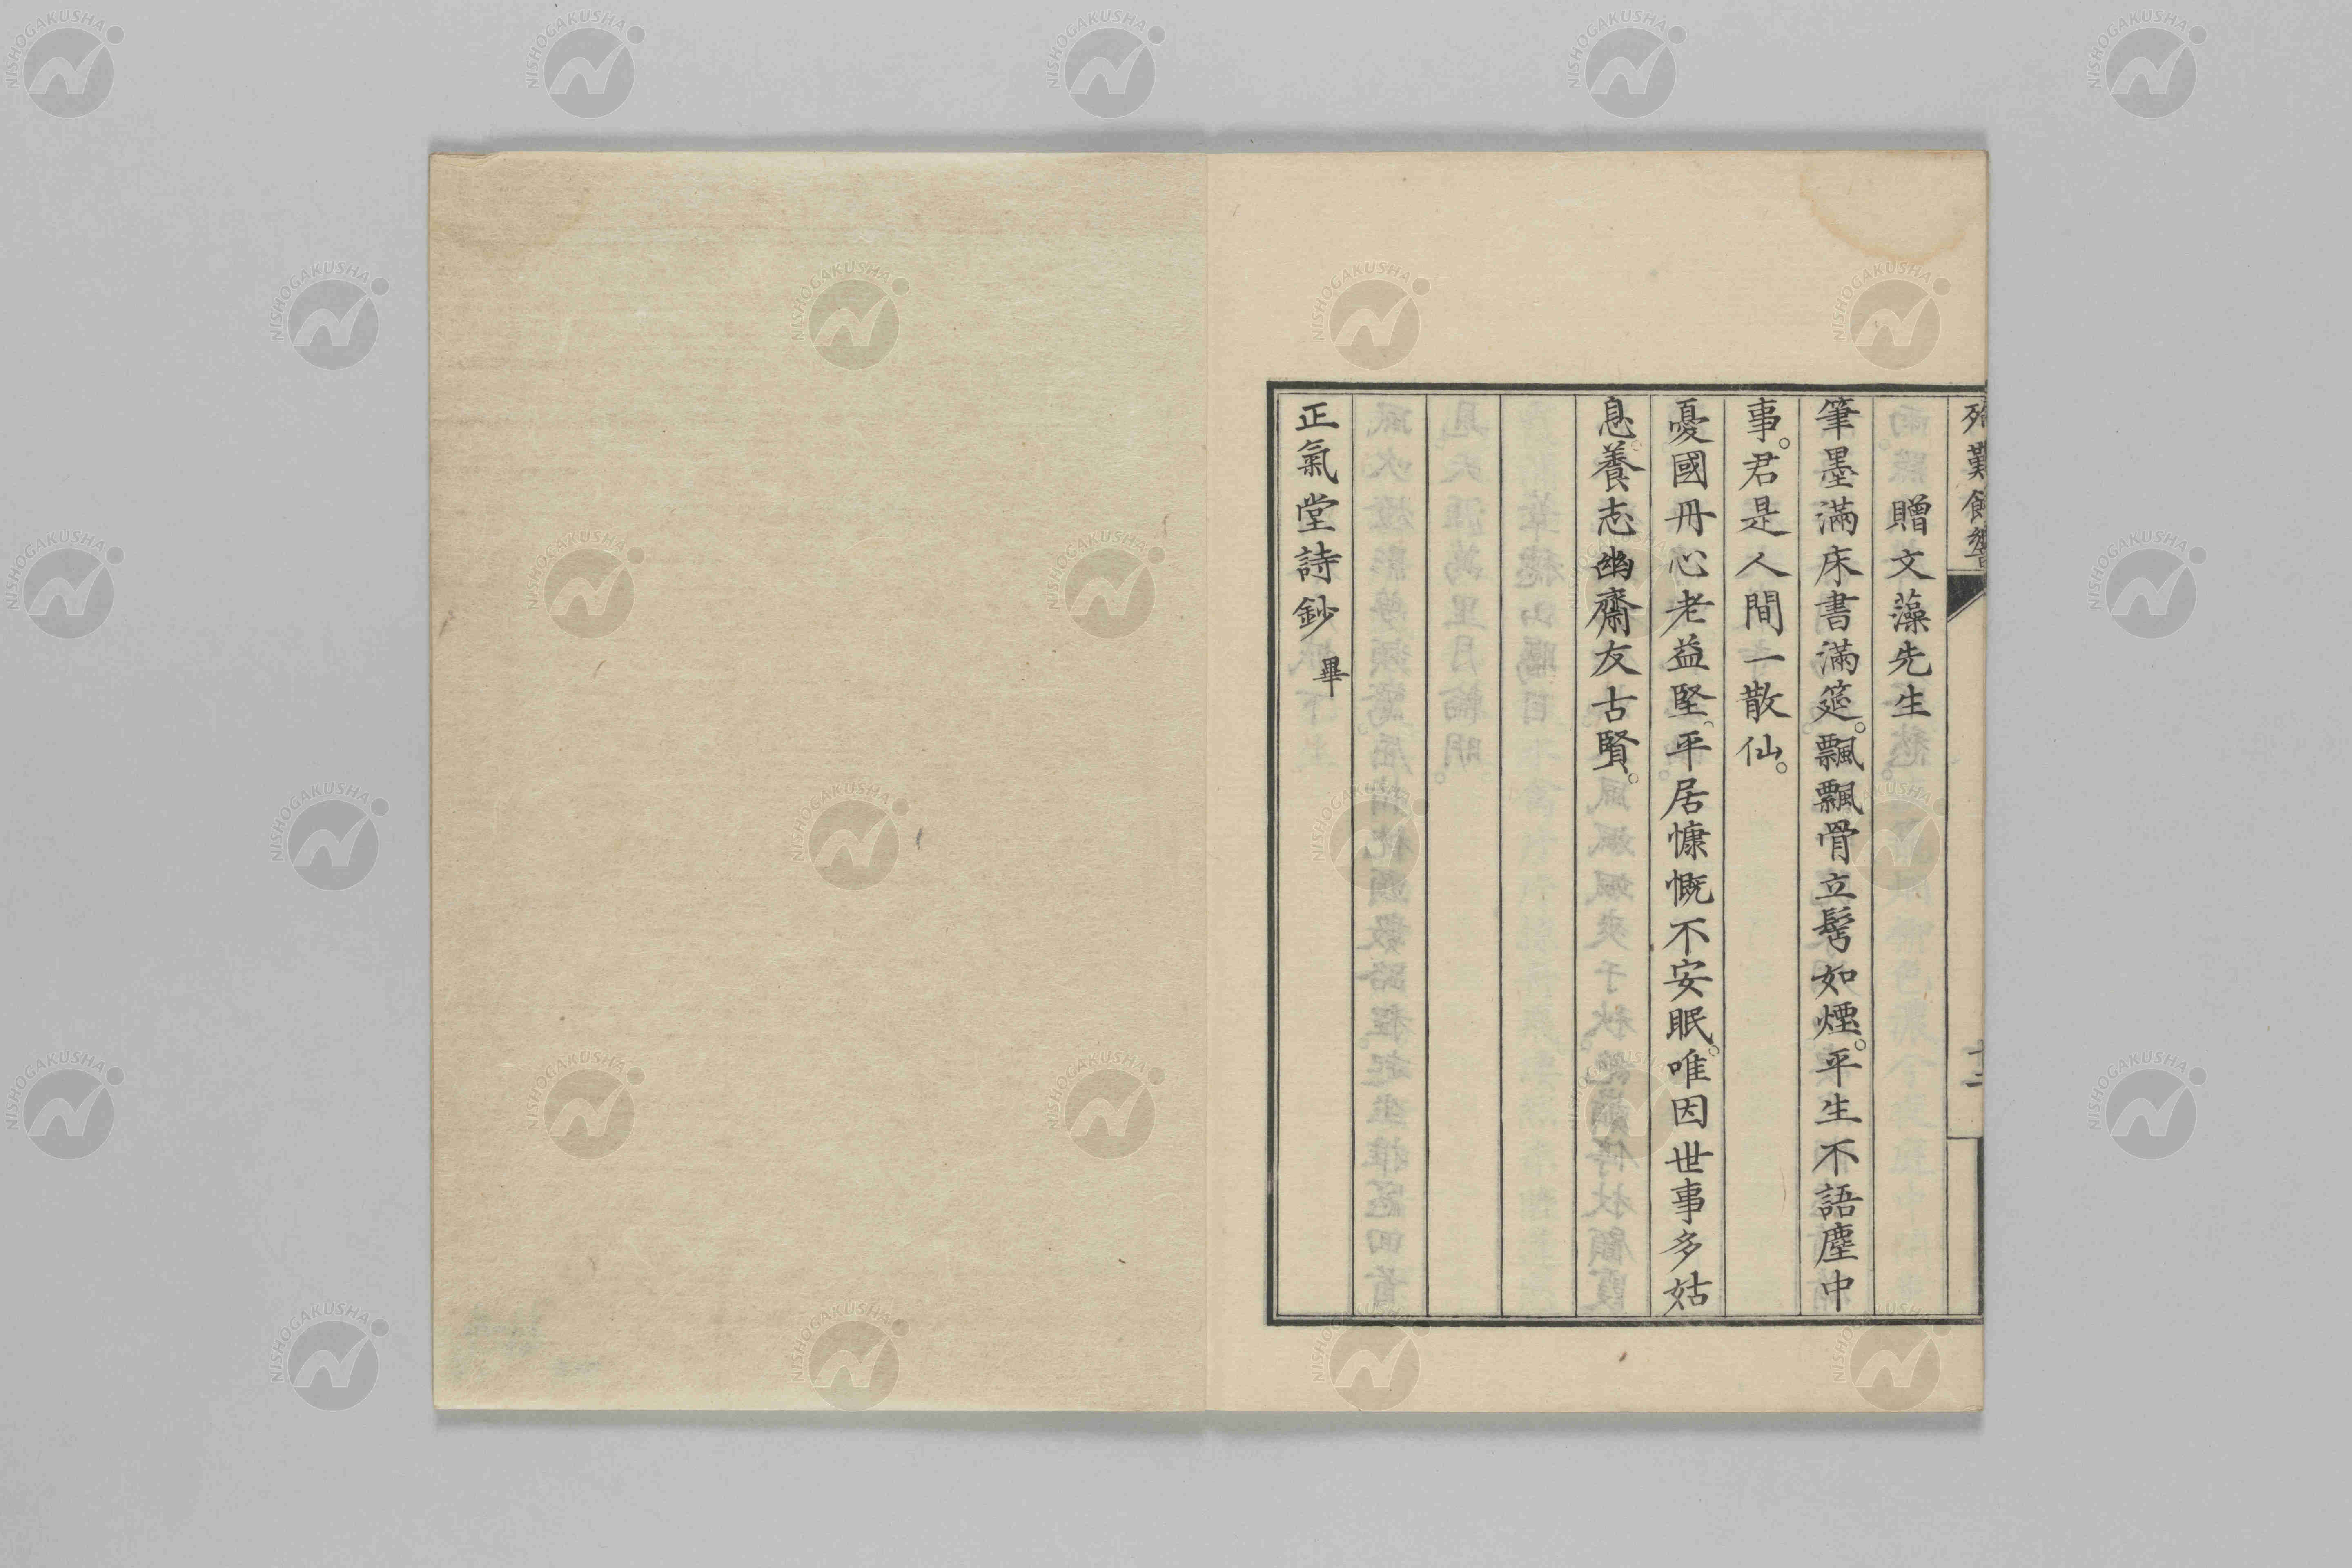 殉難餘響
十二
贈文藻先生
筆墨滿床書滿筵。飄飄骨立鬢如煙。平生不語塵中
事。君是人間一散仙。
憂國丹心老益堅。平居慷慨不安眠。唯因世事多姑
息。養志幽齋友古賢。
正氣堂詩鈔 畢
NISHOGAKUSHA